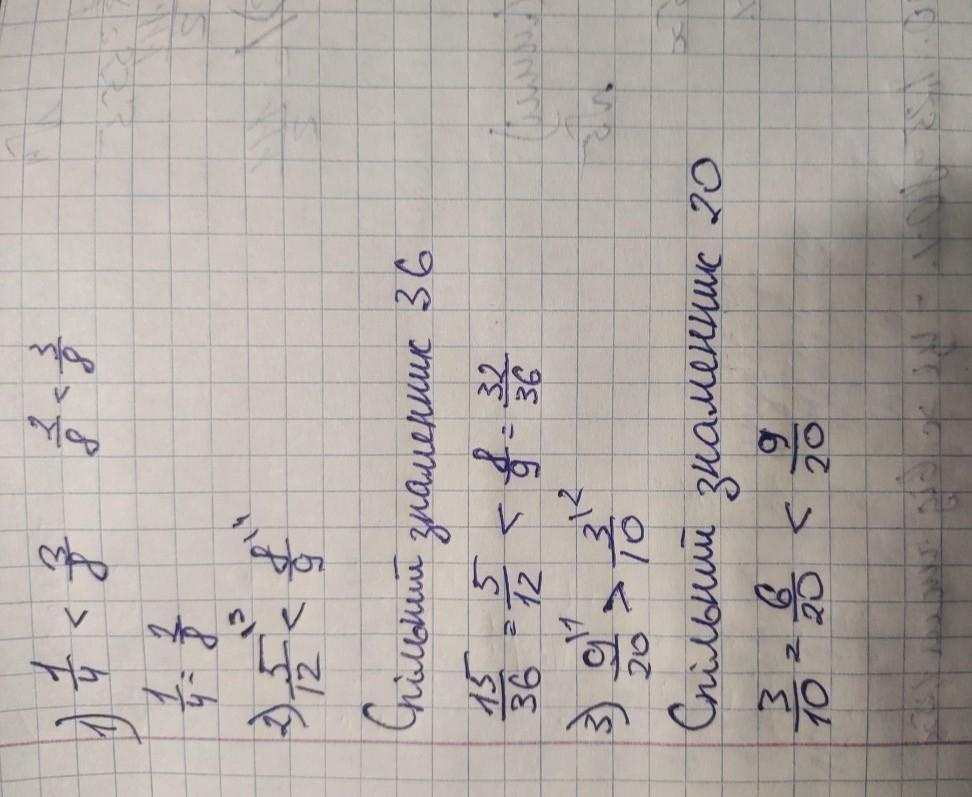 1) 1/4 < 3/8    2/8 < 3/8
1/4 = 2/8
2) 5/12 \3 < 8/9 \4
Спільний знаменник 36
15/36 = 5/12 < 8/9 = 32/36
3) 9/20 \1 > 3/10 \2
Спільний знаменник 20
3/10 = 6/20 < 9/20